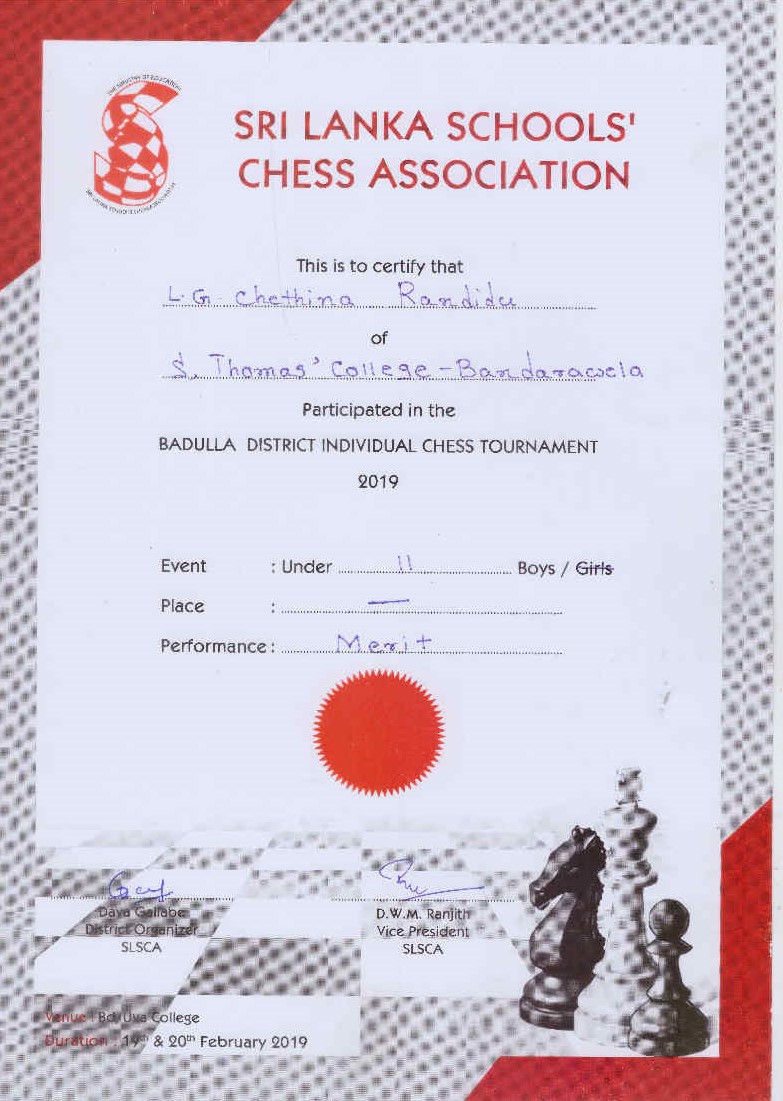 THE MINISTRY OF EDUCATION
SRI LANKA SCHOOLS CHESS ASSOCIATION
SRI LANKA SCHOOLS'
CHESS ASSOCIATION
This is to certify that
L.G. Chethina Randidu
of
S. Thomas' College - Bandarawela
Participated in the
BADULLA DISTRICT INDIVIDUAL CHESS TOURNAMENT
2019
Event : Under 11 Boys / Girls
Place : —
Performance : Merit
Daya Gallabe
District Organizer
SLSCA
D.W.M. Ranjith
Vice President
SLSCA
Venue : Bd/Uva College
Duration : 19th & 20th February 2019